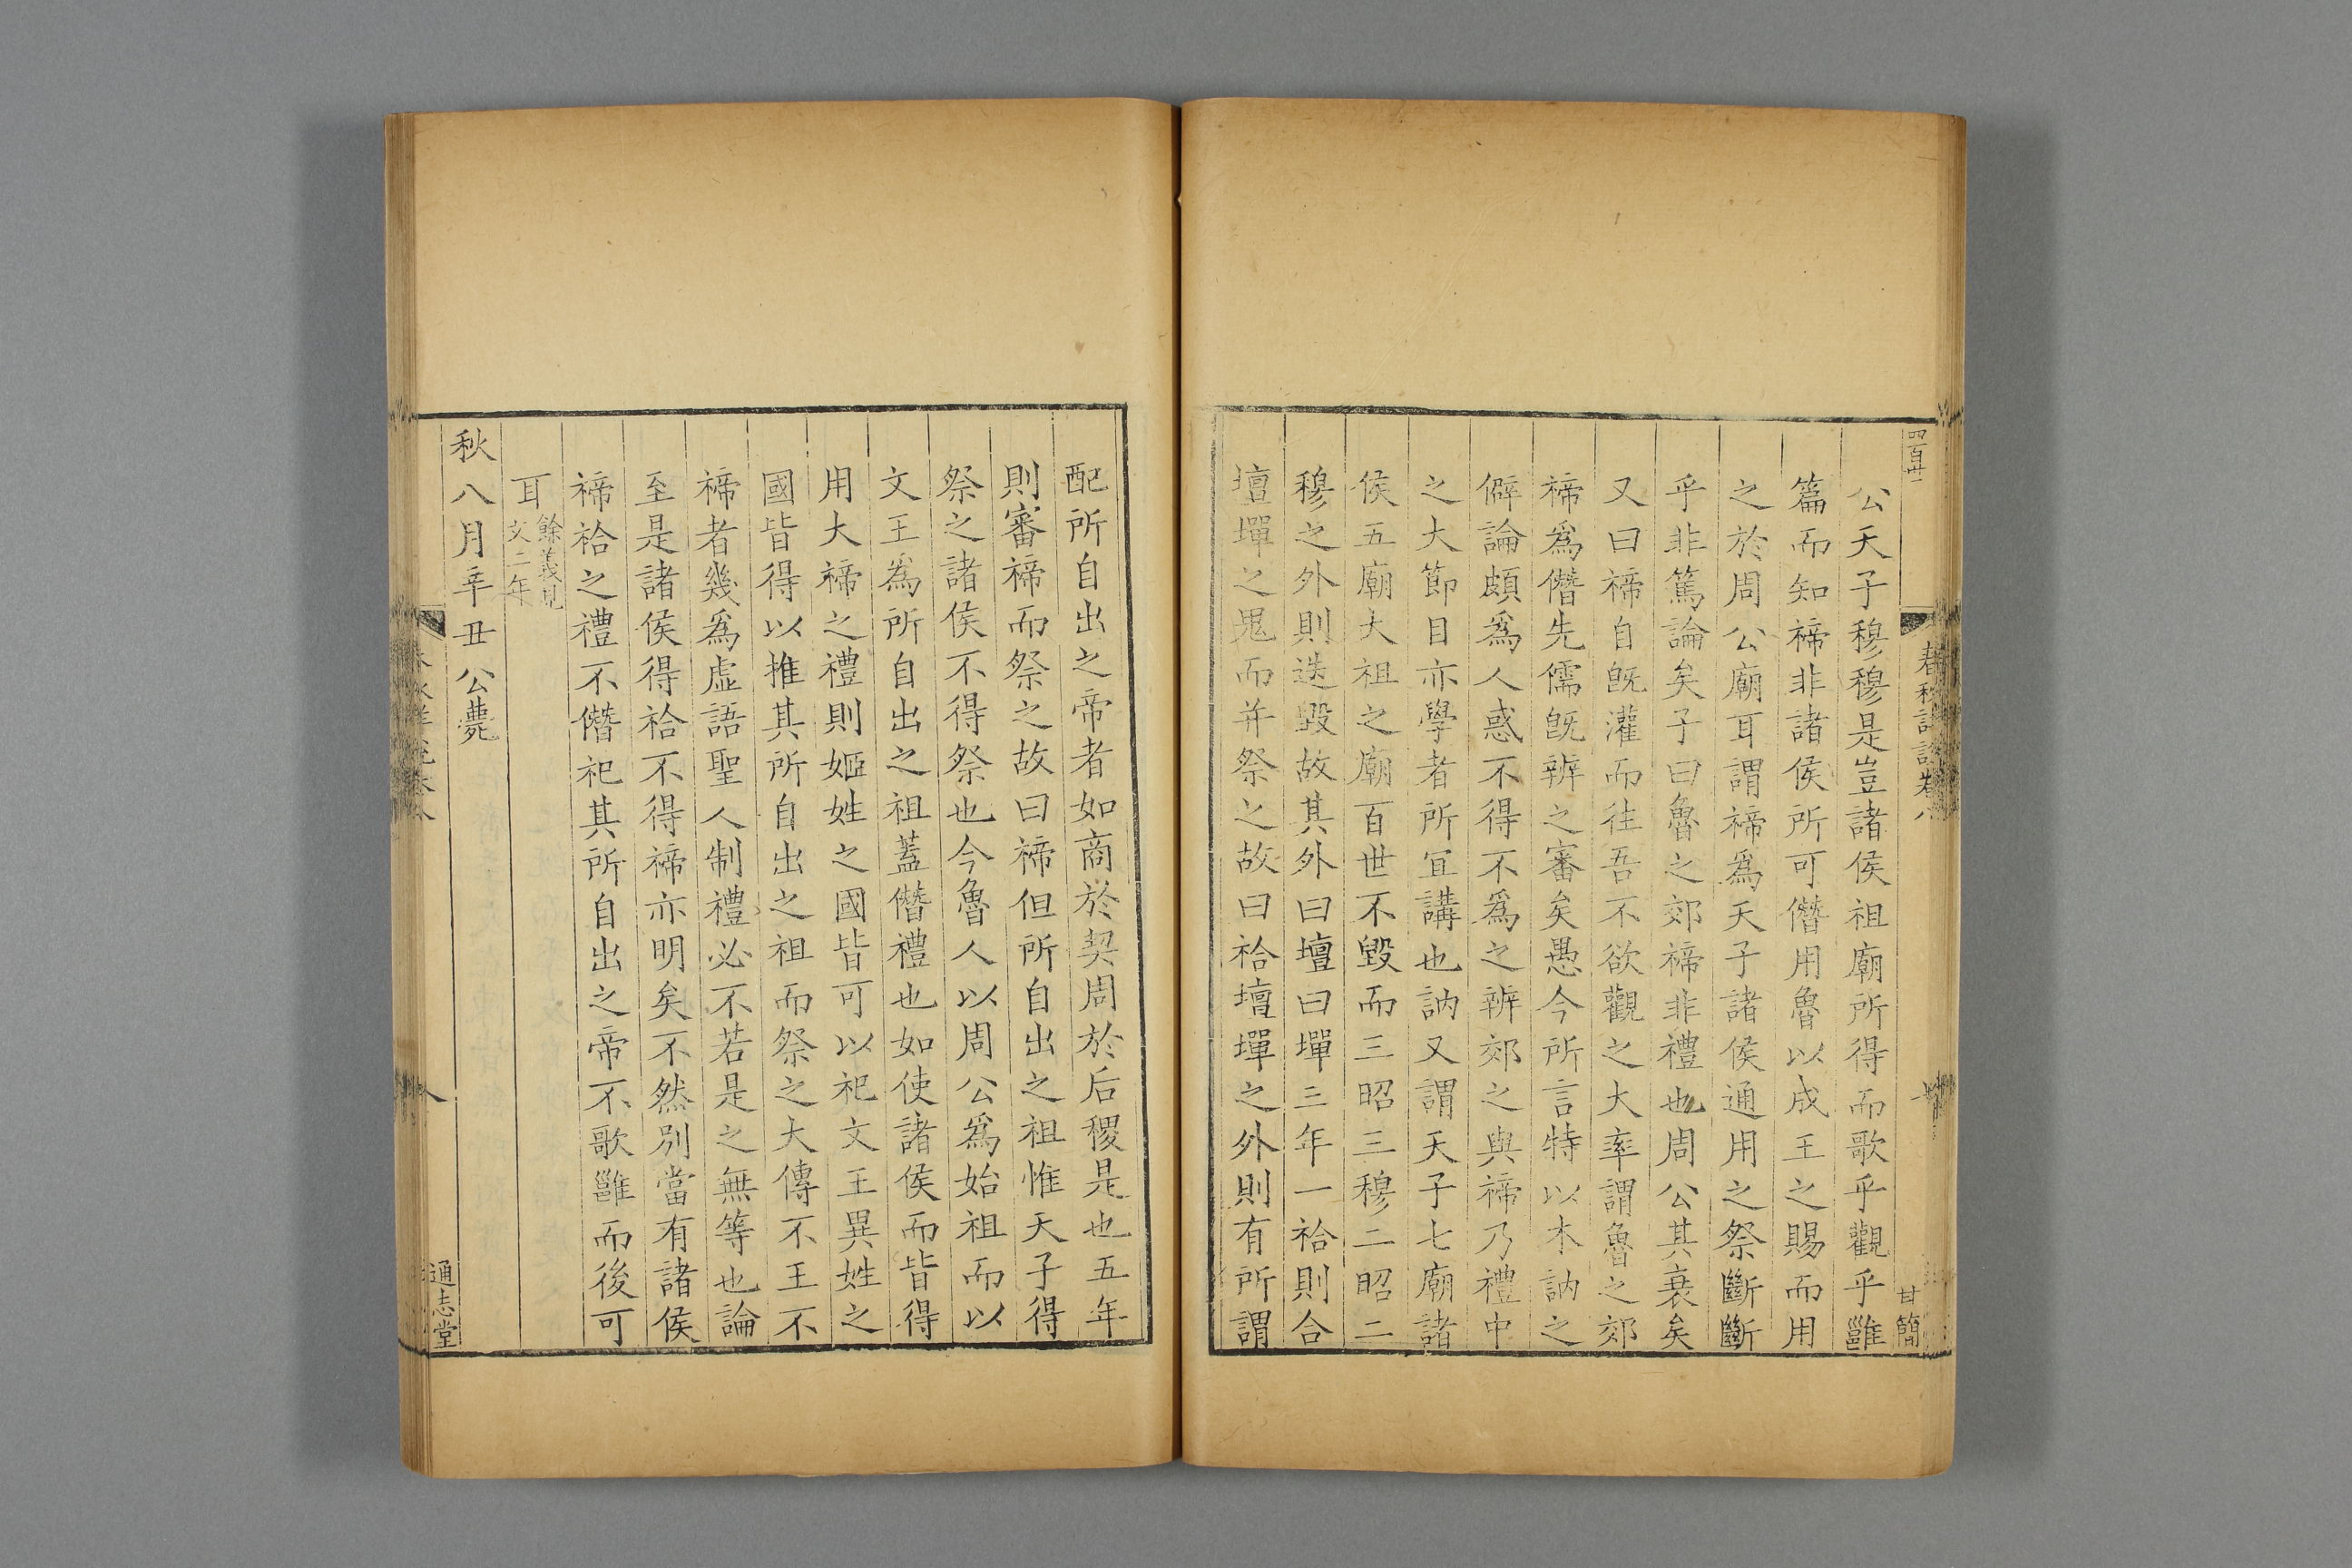 公天子穆穆是豈諸侯祖廟所得而歌乎觀乎雝
篇而知禘非諸侯所可僭用魯以成王之賜而用
之於周公廟耳謂禘爲天子諸侯通用之祭斷斷
乎非篤論矣子曰魯之郊禘非禮也周公其衰矣
又曰禘自旣灌而往吾不欲觀之大率謂魯之郊
禘爲僭先儒旣辨之審矣愚今所言特以木訥之
僻論頗爲人惑不得不爲之辨郊之與禘乃禮中
之大節目亦學者所宜講也訥又謂天子七廟諸
侯五廟大祖之廟百世不毀而三昭三穆二昭二
穆之外則迭毀故其外曰壇曰墠三年一祫則合
壇墠之鬼而并祭之故曰祫壇墠之外則有所謂
配所自出之帝者如商於契周於后稷是也五年
則審禘而祭之故曰禘但所自出之祖惟天子得
祭之諸侯不得祭也今魯人以周公爲始祖而以
文王爲所自出之祖蓋僭禮也如使諸侯而皆得
用大禘之禮則姬姓之國皆可以祀文王異姓之
國皆得以推其所自出之祖而祭之大傳不王不
禘者幾爲虛語聖人制禮必不若是之無等也論
至是諸侯得祫不得禘亦明矣不然別當有諸侯
禘祫之禮不僭祀其所自出之帝不歌雝而後可
耳餘義見文二年
秋八月辛丑公薨
通志堂